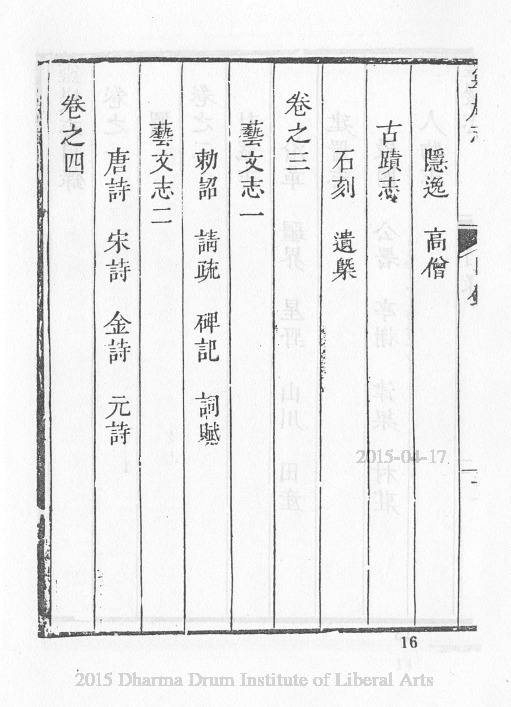 隱逸 高僧
古蹟志
石刻 遺槩
卷之三
藝文志一
勅詔 請疏 碑記 詞賦
藝文志二
唐詩 宋詩 金詩 元詩
卷之四
2015-04-17
16
2015 Dharma Drum Institute of Liberal Arts